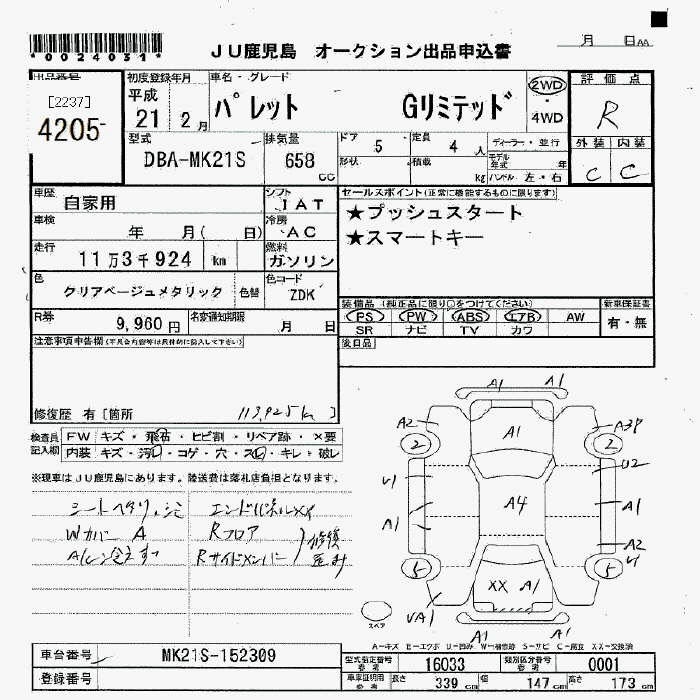 *0024031*
JU鹿児島 オークション出品申込書
月 日AA
出品番号
[2237]
4205
初度登録年月
平成
21 2月
車名・グレード
パレット Gリミテッド
2WD
・
4WD
評価点
R
型式
DBA-MK21S
排気量
658 CC
ドア 5
定員 4 人
形状
積載 kg
ディーラー・並行
モデル年式 年
ハンドル 左・右
外装 内装
C C
車歴 自家用
シフト IAT
車検 年 月( 日)
冷房 AC
走行 11万3千924 km
燃料 ガソリン
色 クリアベージュメタリック 色替
色コード ZDK
R券 9,960円
名変通知期限 月 日
セールスポイント(正常に機能するものに限ります)
★プッシュスタート
★スマートキー
装備品(純正品に限り○をつけてください)
新車保証書
PS PW ABS エアB AW
有・無
SR ナビ TV カワ
後日品
注意事項申告欄
修復歴 有[箇所 113,925km ]
検査員記入欄
FW キズ・飛石・ヒビ割・リペア跡・×要
内装 キズ・汚レ・コゲ・穴・スレ・キレ・破レ
※現車はJU鹿児島にあります。陸送費は落札店負担となります。
エンドパネルXX
Wカバー A
Rフロア
Rサイドメンバー
修復
A1 A1
A2 A1 A3P
2 2
U1 U2
A4
A1 A1
A2
U1
5 5
XX A1
UA1
A1 A1
スペア
A－キズ E－エクボ U－凹み W－補修跡 S－サビ C－腐食 XX－交換済
車台番号 MK21S-152309
登録番号
型式指定番号 参考 16033
類別区分番号 参考 0001
車庫証明用 参考 長さ 339 cm 幅 147 cm 高さ 173 cm